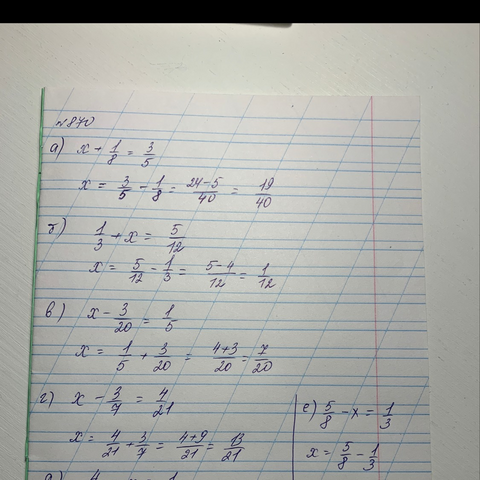 №870
а) x + 1/8 = 3/5
x = 3/5 - 1/8 = 24-5/40 = 19/40
б) 1/3 + x = 5/12
x = 5/12 - 1/3 = 5-4/12 = 1/12
в) x - 3/20 = 1/5
x = 1/5 + 3/20 = 4+3/20 = 7/20
г) x - 3/7 = 4/21
x = 4/21 + 3/7 = 4+9/21 = 13/21
е) 5/8 - x = 1/3
x = 5/8 - 1/3